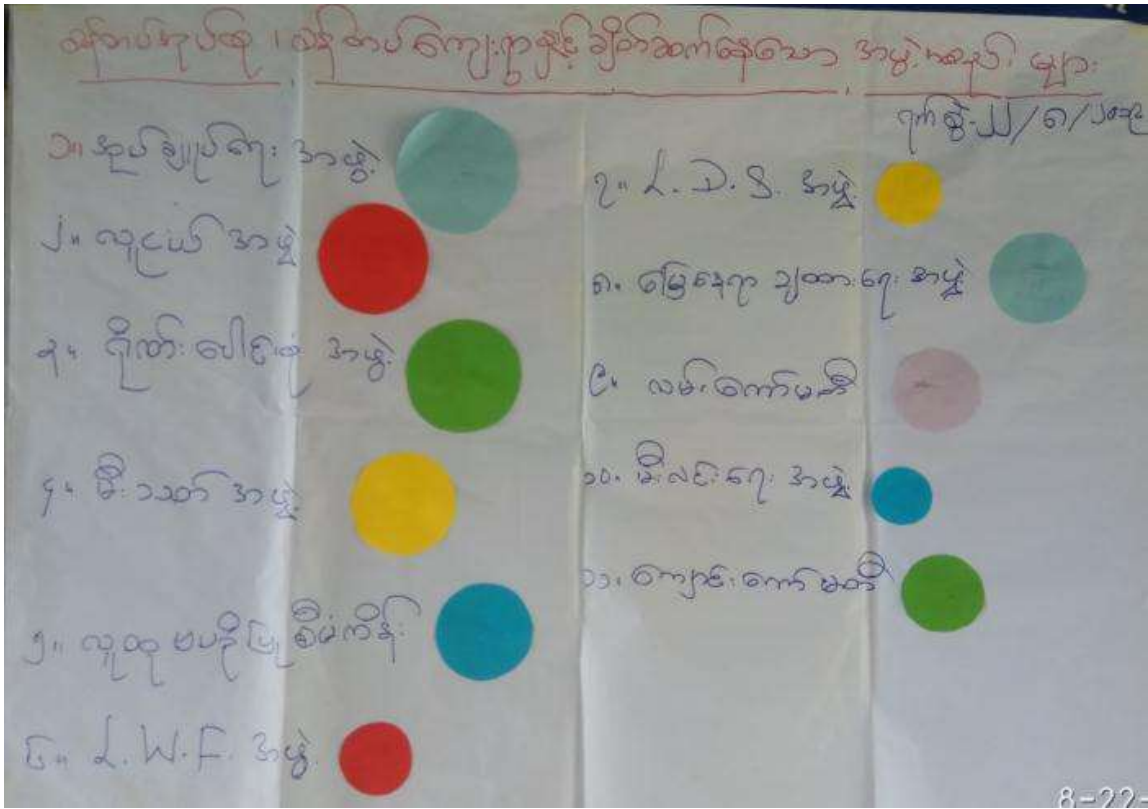 ကျေးရွာနှင့် ချိတ်ဆက်နေသော အဖွဲ့အစည်း များ
ရက်စွဲ-၂၂/၈/
၁။ အုပ်ချုပ်ရေး အဖွဲ့
၂။ လူငယ် အဖွဲ့
၃။ ဂိုဏ်းပေါင်းစုံ အဖွဲ့
၄။ မီးသတ် အဖွဲ့
၅။ လူထုဗဟိုပြုစီမံကိန်း
၆။ L.W.F. အဖွဲ့
၇။ L.D.S. အဖွဲ့
၈။ မြေနေရာ ချထားရေး အဖွဲ့
၉။ လမ်းကော်မတီ
၁၀။ မီးလင်းရေး အဖွဲ့
၁၁။ ကျောင်းကော်မတီ
8-22-